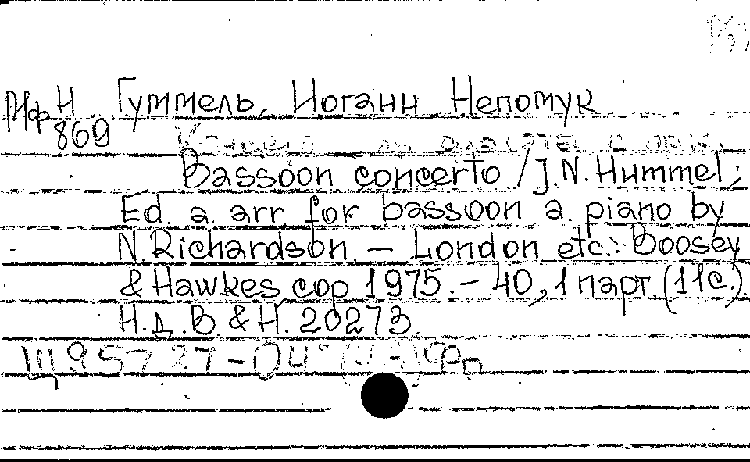 Гуммель, Иоганн Непомук
Мф Н
869
Bassoon concerto / J.N. Hummel;
Ed. a. arr for bassoon a. piano by
N. Richardson. — London etc.: Boosey
& Hawkes, cop 1975. - 40, 1 парт. (11с.)
Н.д. B & H. 20273.